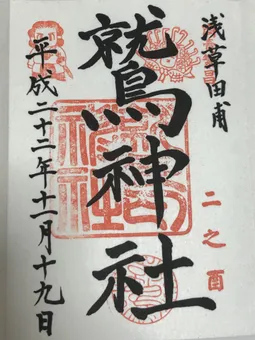 浅草田甫
二之酉
鷲神社
平成二十二年十一月十九日